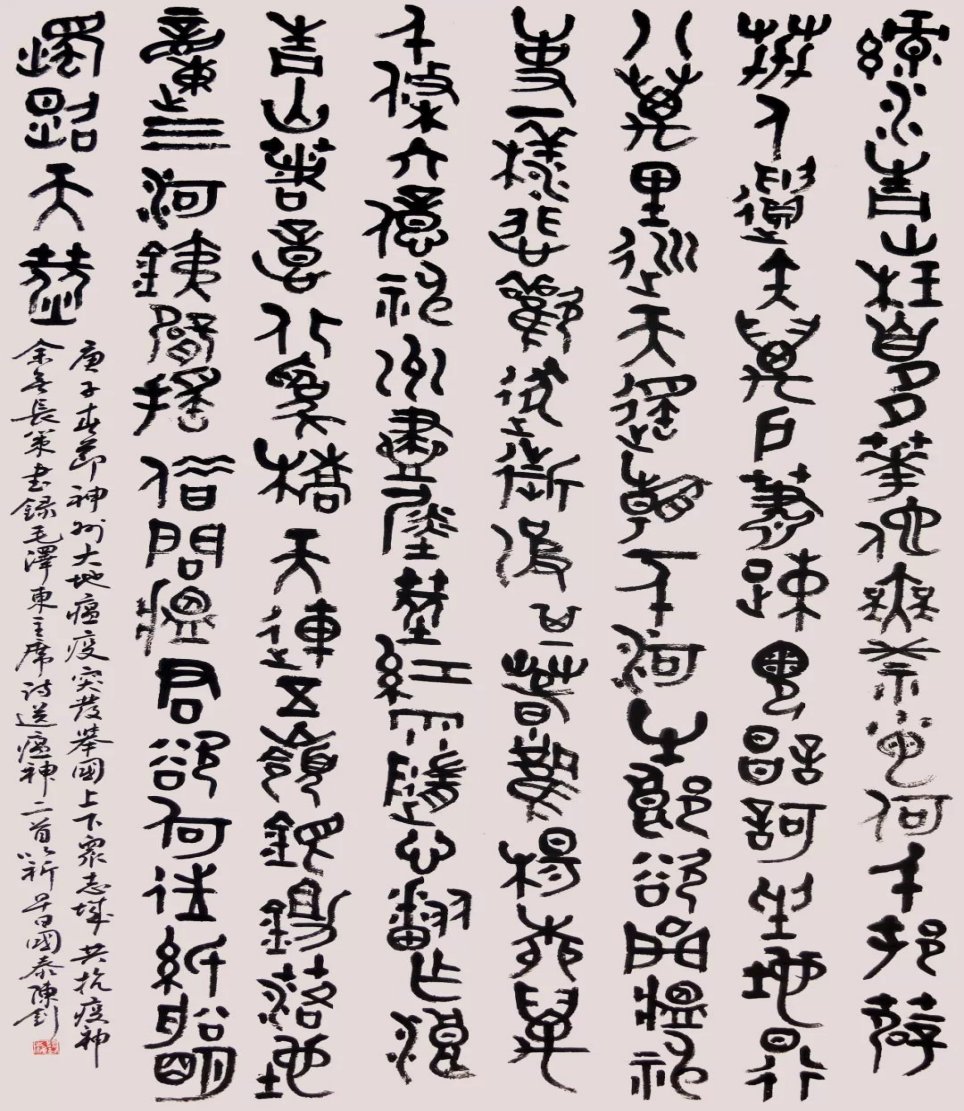 綠水青山枉自多華佗無奈小蟲何千邨薜
荔人遺矢萬戶蕭疏鬼唱歌坐地日行
八萬里巡天遙看一千河牛郎欲問瘟神
事一樣悲歡逐逝波其二春風楊柳萬
千條六億神州盡舜堯紅雨隨心翻作浪
青山著意化為橋天連五嶺銀鋤落地
動三河鐵臂搖借問瘟君欲何往紙船明
燭照天燒
庚子春節神州大地瘟疫突發舉國上下眾志城共抗疫神
余無長策書錄毛澤東主席詩送瘟神二首以祈國泰陳釗